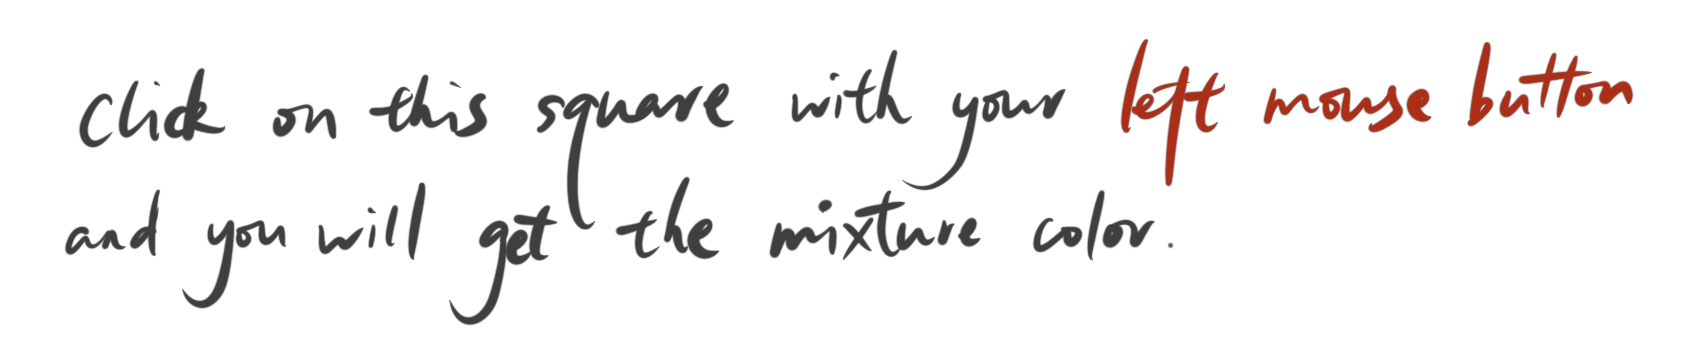 Click on this square with your left mouse button
and you will get the mixture color.